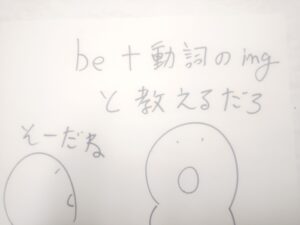 be+動詞のing
と教えるだろ
そーだね